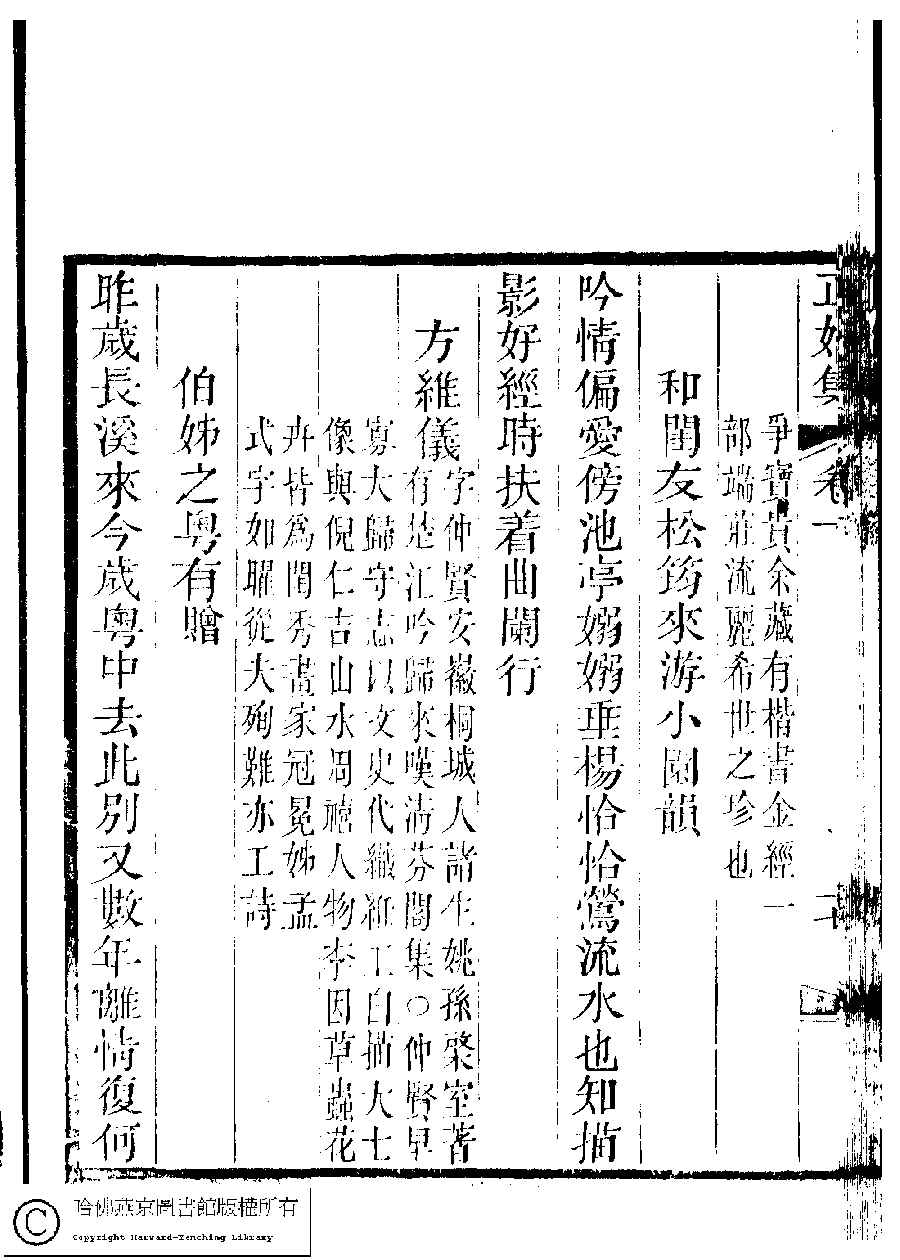 正始集 卷一
爭寶貴余藏有楷書金經一
部端莊流麗希世之珍也
和閨友松筠來游小園韻
吟情偏愛傍池亭嫋嫋垂楊恰恰鶯流水也知描
影好經時扶着曲闌行
方維儀
字仲賢安徽桐城人諸生姚孫棨室著
有楚江吟歸來嘆清芬閣集○仲賢早
寡大歸守志以文史代織絍工白描大士
像與倪仁吉山水周禧人物李因草蟲花
卉皆為閨秀畫家冠冕姊孟
式字如耀從夫殉難亦工詩
伯姊之粵有贈
昨歲長溪來今歲粵中去此別又數年離情復何
哈佛燕京圖書館版權所有
Copyright Harvard-Yenching Library